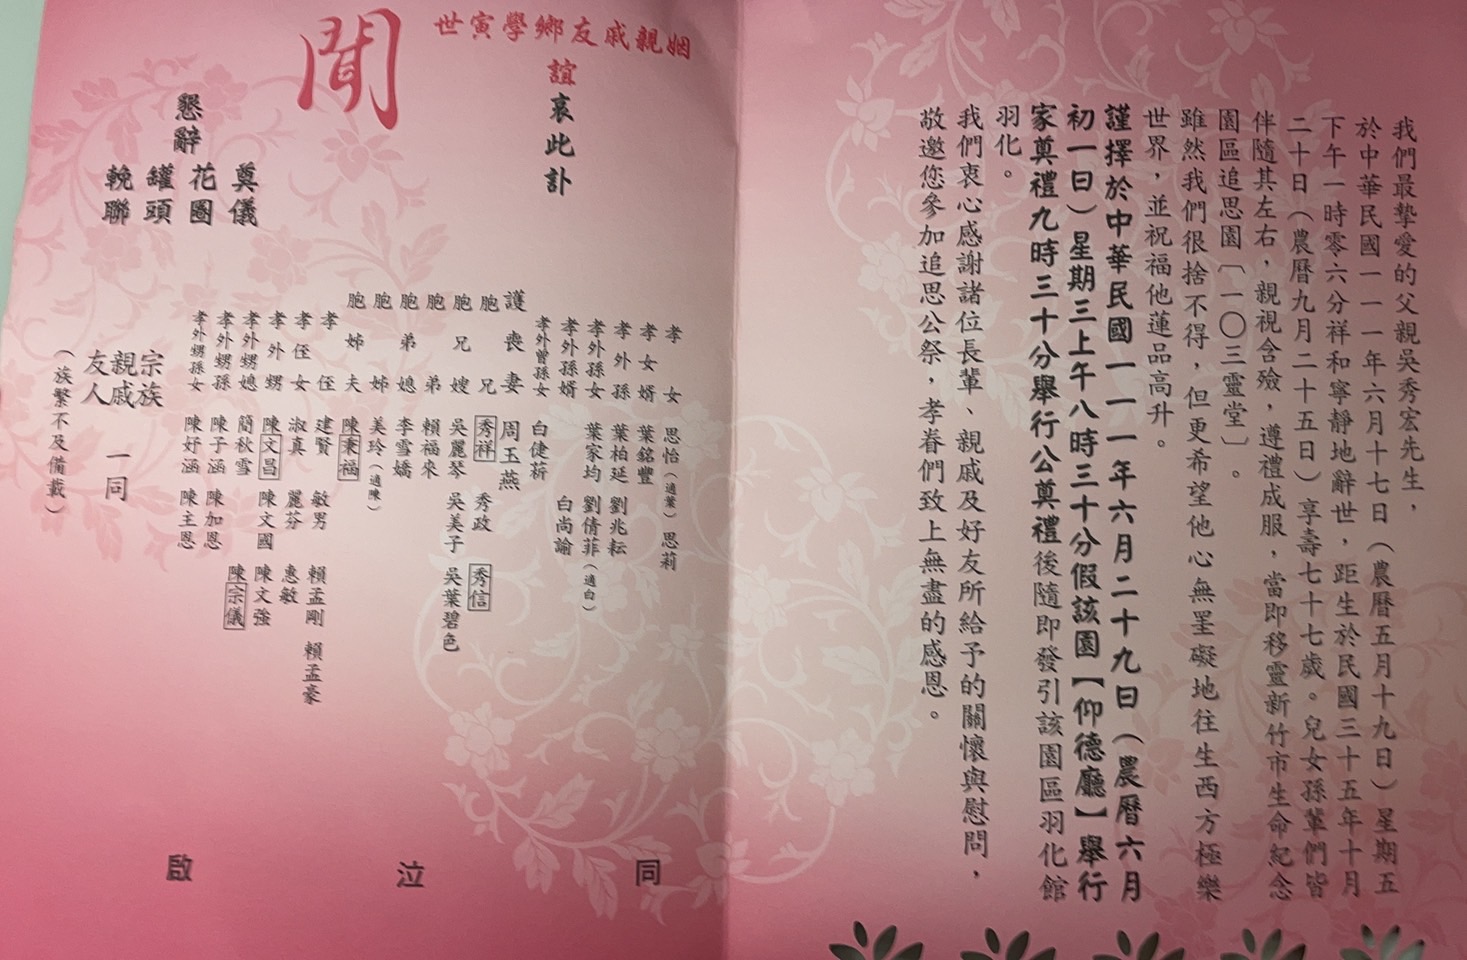 我們最摯愛的父親吳秀宏先生，
於中華民國一一一年六月十七日（農曆五月十九日）星期五
下午一時零六分祥和寧靜地辭世，距生於民國三十五年十月
二十日（農曆九月二十五日）享壽七十七歲。兒女孫輩們皆
伴隨其左右，親視含殮，遵禮成服，當即移靈新竹市生命紀念
園區追思園〔一〇三靈堂〕。
雖然我們很捨不得，但更希望他心無罣礙地往生西方極樂
世界，並祝福他蓮品高升。
謹擇於中華民國一一一年六月二十九日（農曆六月
初一日）星期三上午八時三十分假該園【仰德廳】舉行
家奠禮九時三十分舉行公奠禮後隨即發引該園區羽化館
羽化。
我們衷心感謝諸位長輩、親戚及好友所給予的關懷與慰問，
敬邀您參加追思公祭，孝眷們致上無盡的感恩。
姻親戚友鄉學寅世
誼哀此訃
聞
懇辭
奠儀
花圈
罐頭
輓聯
孝女 思怡（適葉） 思莉
孝女婿 葉銘豐
孝外孫 葉柏延 劉兆耘
孝外孫女 葉家均 劉倩菲（適白）
孝外孫婿 白尚諭
孝外曾孫女 白健菥
護喪妻 周玉燕
胞兄 秀祥 秀政 秀信
胞兄嫂 吳麗琴 吳美子 吳葉碧色
胞弟 賴福來
胞弟媳 李雪嬌
胞姊 美玲（適陳）
胞姊夫 陳秉福
孝侄 建賢 敏男 賴孟剛 賴孟豪
孝侄女 淑真 麗芬 惠敏
孝外甥 陳文昌 陳文國 陳文強 陳宗儀
孝外甥媳 簡秋雪
孝外甥孫 陳子涵 陳加恩
孝外甥孫女 陳妤涵 陳主恩
宗族
親戚
友人
一同
（族繁不及備載）
同泣啟